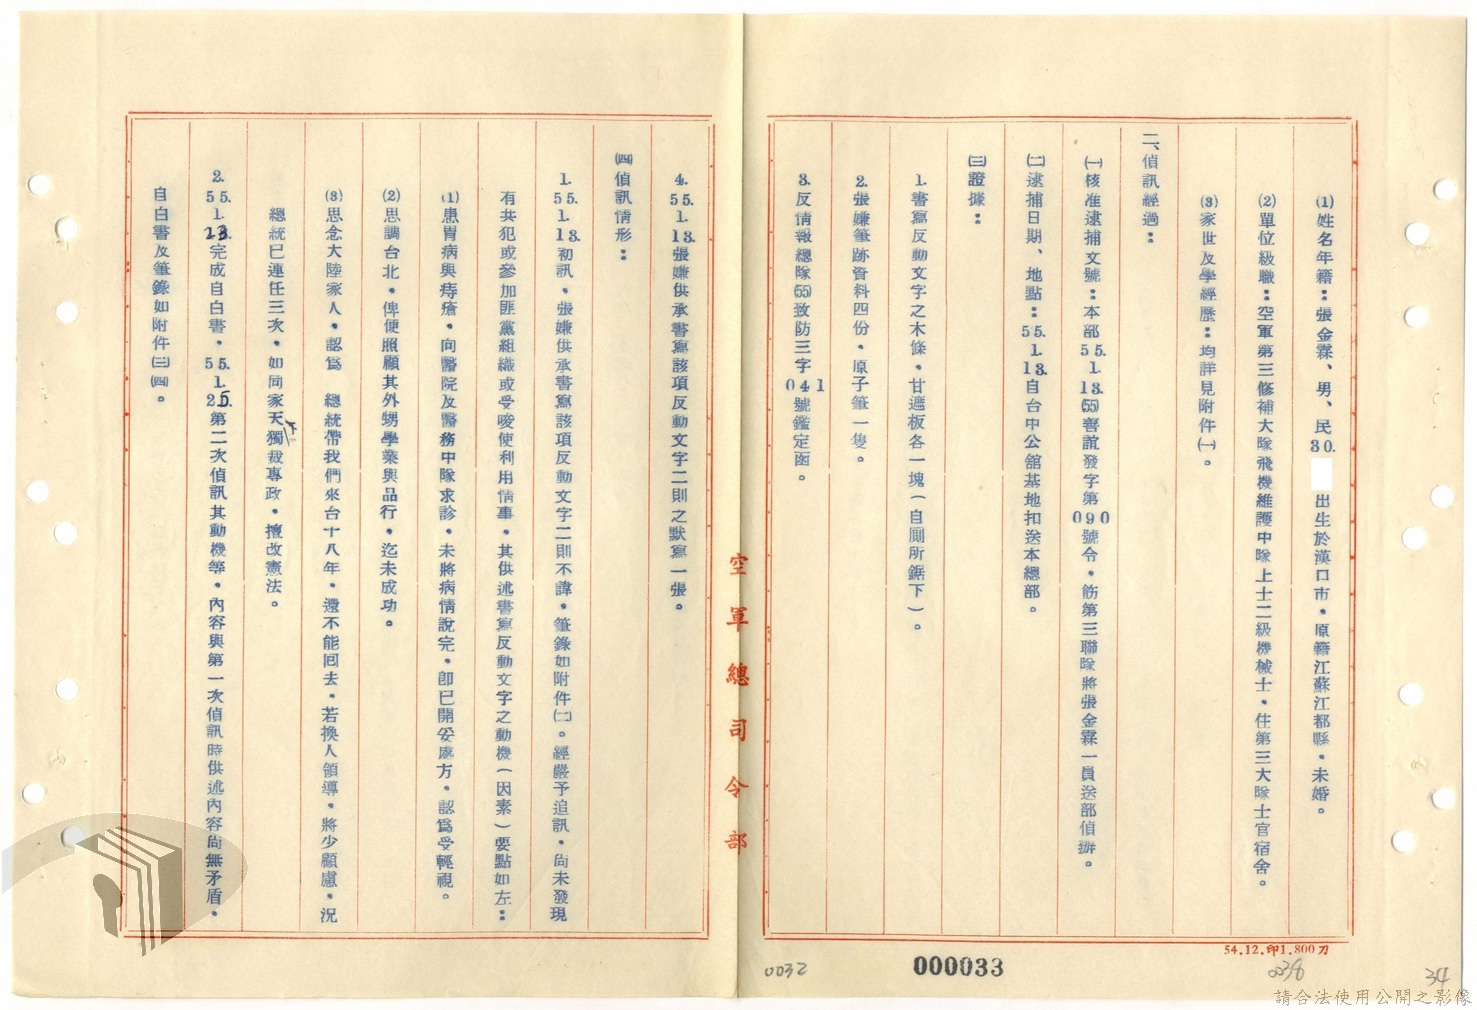 (1)姓名年籍：張金霖、男、民30.　出生於漢口市，原籍江蘇江都縣，未婚。
(2)單位級職：空軍第三修補大隊飛機維護中隊上士二級機械士，住第三大隊士官宿舍。
(3)家世及學經歷：均詳見附件㈠。
二、偵訊經過：
㈠核准逮捕文號：本部55.1.13.(55)善誼發字第090號令，飭第三聯隊將張金霖一員送部偵辦。
㈡逮捕日期、地點：55.1.13.自台中公館基地扣送本總部。
㈢證據：
1.書寫反動文字之木條，甘蔗板各一塊（自廁所鋸下）。
2.張嫌筆跡資料四份，原子筆一隻。
3.反情報總隊(55)致防三字041號鑑定函。
4.55.1.13.張嫌供承書寫該項反動文字二則之默寫一張。
㈣偵訊情形：
1.55.1.13.初訊，張嫌供承書寫該項反動文字二則不諱，筆錄如附件㈡。經嚴予追訊，尚未發現
有共犯或參加匪黨組織或受唆使利用情事，其供述書寫反動文字之動機（因素）要點如左：
(1)患胃病與痔瘡，向醫院及醫務中隊求診，未將病情說完，卽已開妥處方，認爲受輕視。
(2)思調台北，俾便照顧其外甥學業與品行，迄未成功。
(3)思念大陸家人，認爲　總統帶我們來台十八年，還不能回去，若換人領導，將少顧慮，況
總統已連任三次，如同家天下獨裁專政，擅改憲法。
2.55.1.23.完成自白書，55.1.25.第二次偵訊其動機等，內容與第一次偵訊時供述內容尚無矛盾，
自白書及筆錄如附件㈢㈣。
空軍總司令部
54.12.印1.800刀
0032
000033
0038
34
請合法使用公開之影像